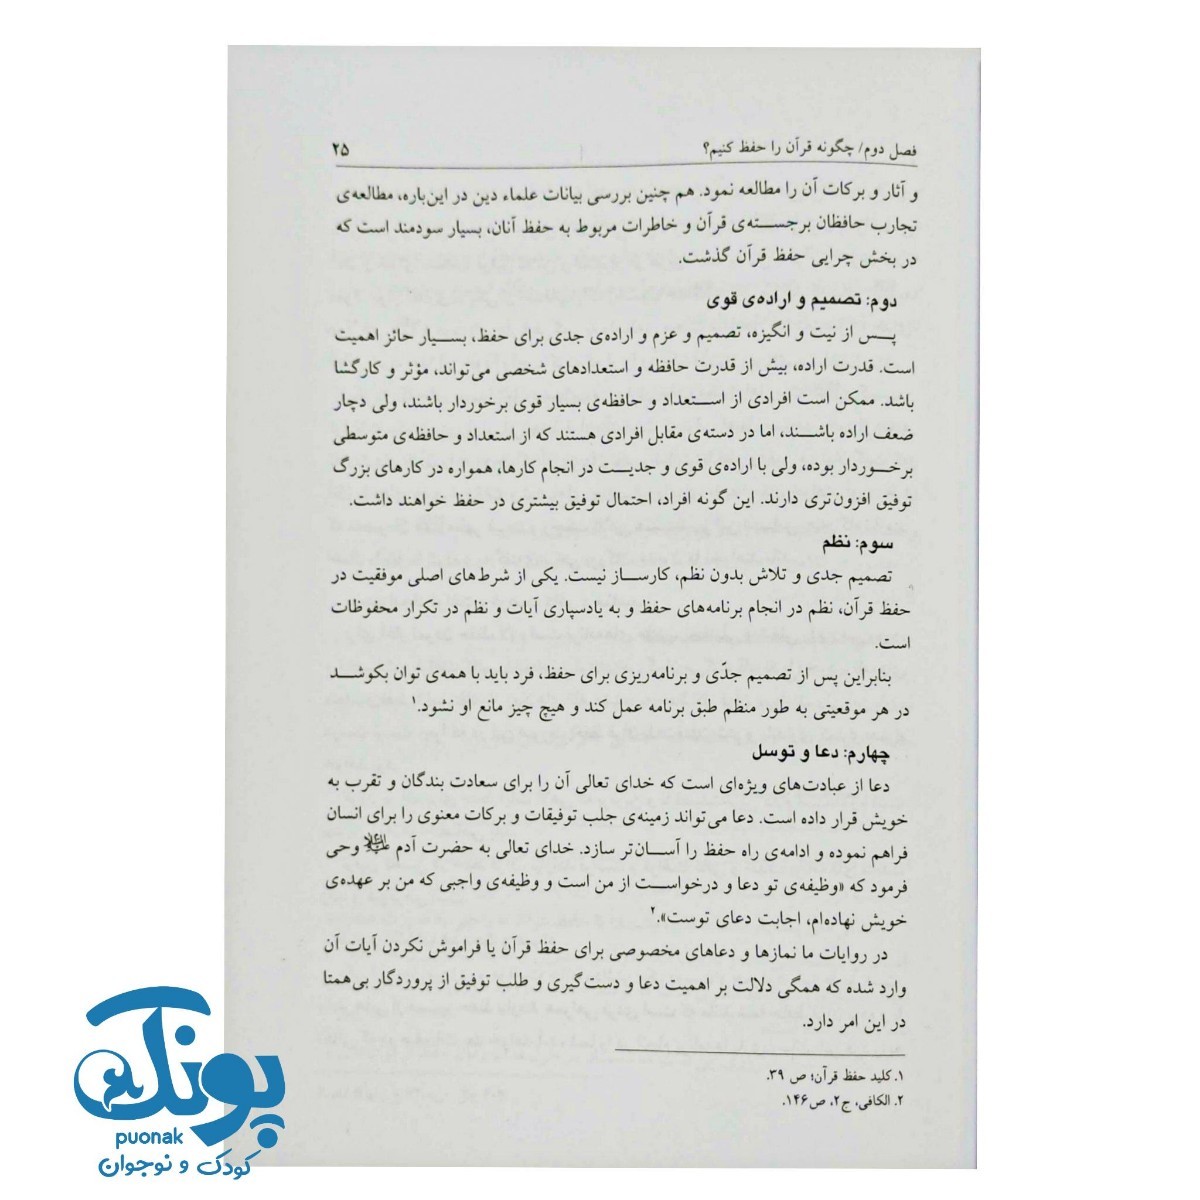 فصل دوم/ چگونه قرآن را حفظ کنیم؟ ۲۵
و آثار و برکات آن را مطالعه نمود. هم چنین بررسی بیانات علماء دین در این‌باره، مطالعه‌ی
تجارب حافظان برجسته‌ی قرآن و خاطرات مربوط به حفظ آنان، بسیار سودمند است که
در بخش چرایی حفظ قرآن گذشت.
دوم: تصمیم و اراده‌ی قوی
پس از نیت و انگیزه، تصمیم و عزم و اراده‌ی جدی برای حفظ، بسیار حائز اهمیت
است. قدرت اراده، بیش از قدرت حافظه و استعدادهای شخصی می‌تواند، مؤثر و کارگشا
باشد. ممکن است افرادی از استعداد و حافظه‌ی بسیار قوی برخوردار باشند، ولی دچار
ضعف اراده باشند، اما در دسته‌ی مقابل افرادی هستند که از استعداد و حافظه‌ی متوسطی
برخوردار بوده، ولی با اراده‌ی قوی و جدیت در انجام کارها، همواره در کارهای بزرگ
توفیق افزون‌تری دارند. این گونه افراد، احتمال توفیق بیشتری در حفظ خواهند داشت.
سوم: نظم
تصمیم جدی و تلاش بدون نظم، کارساز نیست. یکی از شرط‌های اصلی موفقیت در
حفظ قرآن، نظم در انجام برنامه‌های حفظ و به یادسپاری آیات و نظم در تکرار محفوظات
است.
بنابراین پس از تصمیم جدّی و برنامه‌ریزی برای حفظ، فرد باید با همه‌ی توان بکوشد
در هر موقعیتی به طور منظم طبق برنامه عمل کند و هیچ چیز مانع او نشود.۱
چهارم: دعا و توسل
دعا از عبادت‌های ویژه‌ای است که خدای تعالی آن را برای سعادت بندگان و تقرب به
خویش قرار داده است. دعا می‌تواند زمینه‌ی جلب توفیقات و برکات معنوی را برای انسان
فراهم نموده و ادامه‌ی راه حفظ را آسان‌تر سازد. خدای تعالی به حضرت آدم علیه‌السلام وحی
فرمود که «وظیفه‌ی تو دعا و درخواست از من است و وظیفه‌ی واجبی که من بر عهده‌ی
خویش نهاده‌ام، اجابت دعای توست».۲
در روایات ما نمازها و دعاهای مخصوصی برای حفظ قرآن یا فراموش نکردن آیات آن
وارد شده که همگی دلالت بر اهمیت دعا و دست‌گیری و طلب توفیق از پروردگار بی‌همتا
در این امر دارد.
۱. کلید حفظ قرآن؛ ص ۳۹.
۲. الکافی، ج۲، ص۱۴۶.
پونک
puonak
کودک و نوجوان